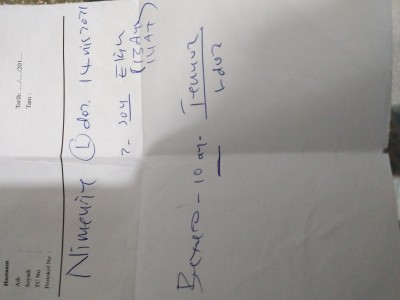 Hastanın
Adı :
Soyadı :
TC No :
Protokol No :
Tarih: ..../..../201....
Tanı :
Nimenrix 1 doz. 14 nis 2021
2- son Ekim
Bexsero - 10 ay. Temmuz
1 doz